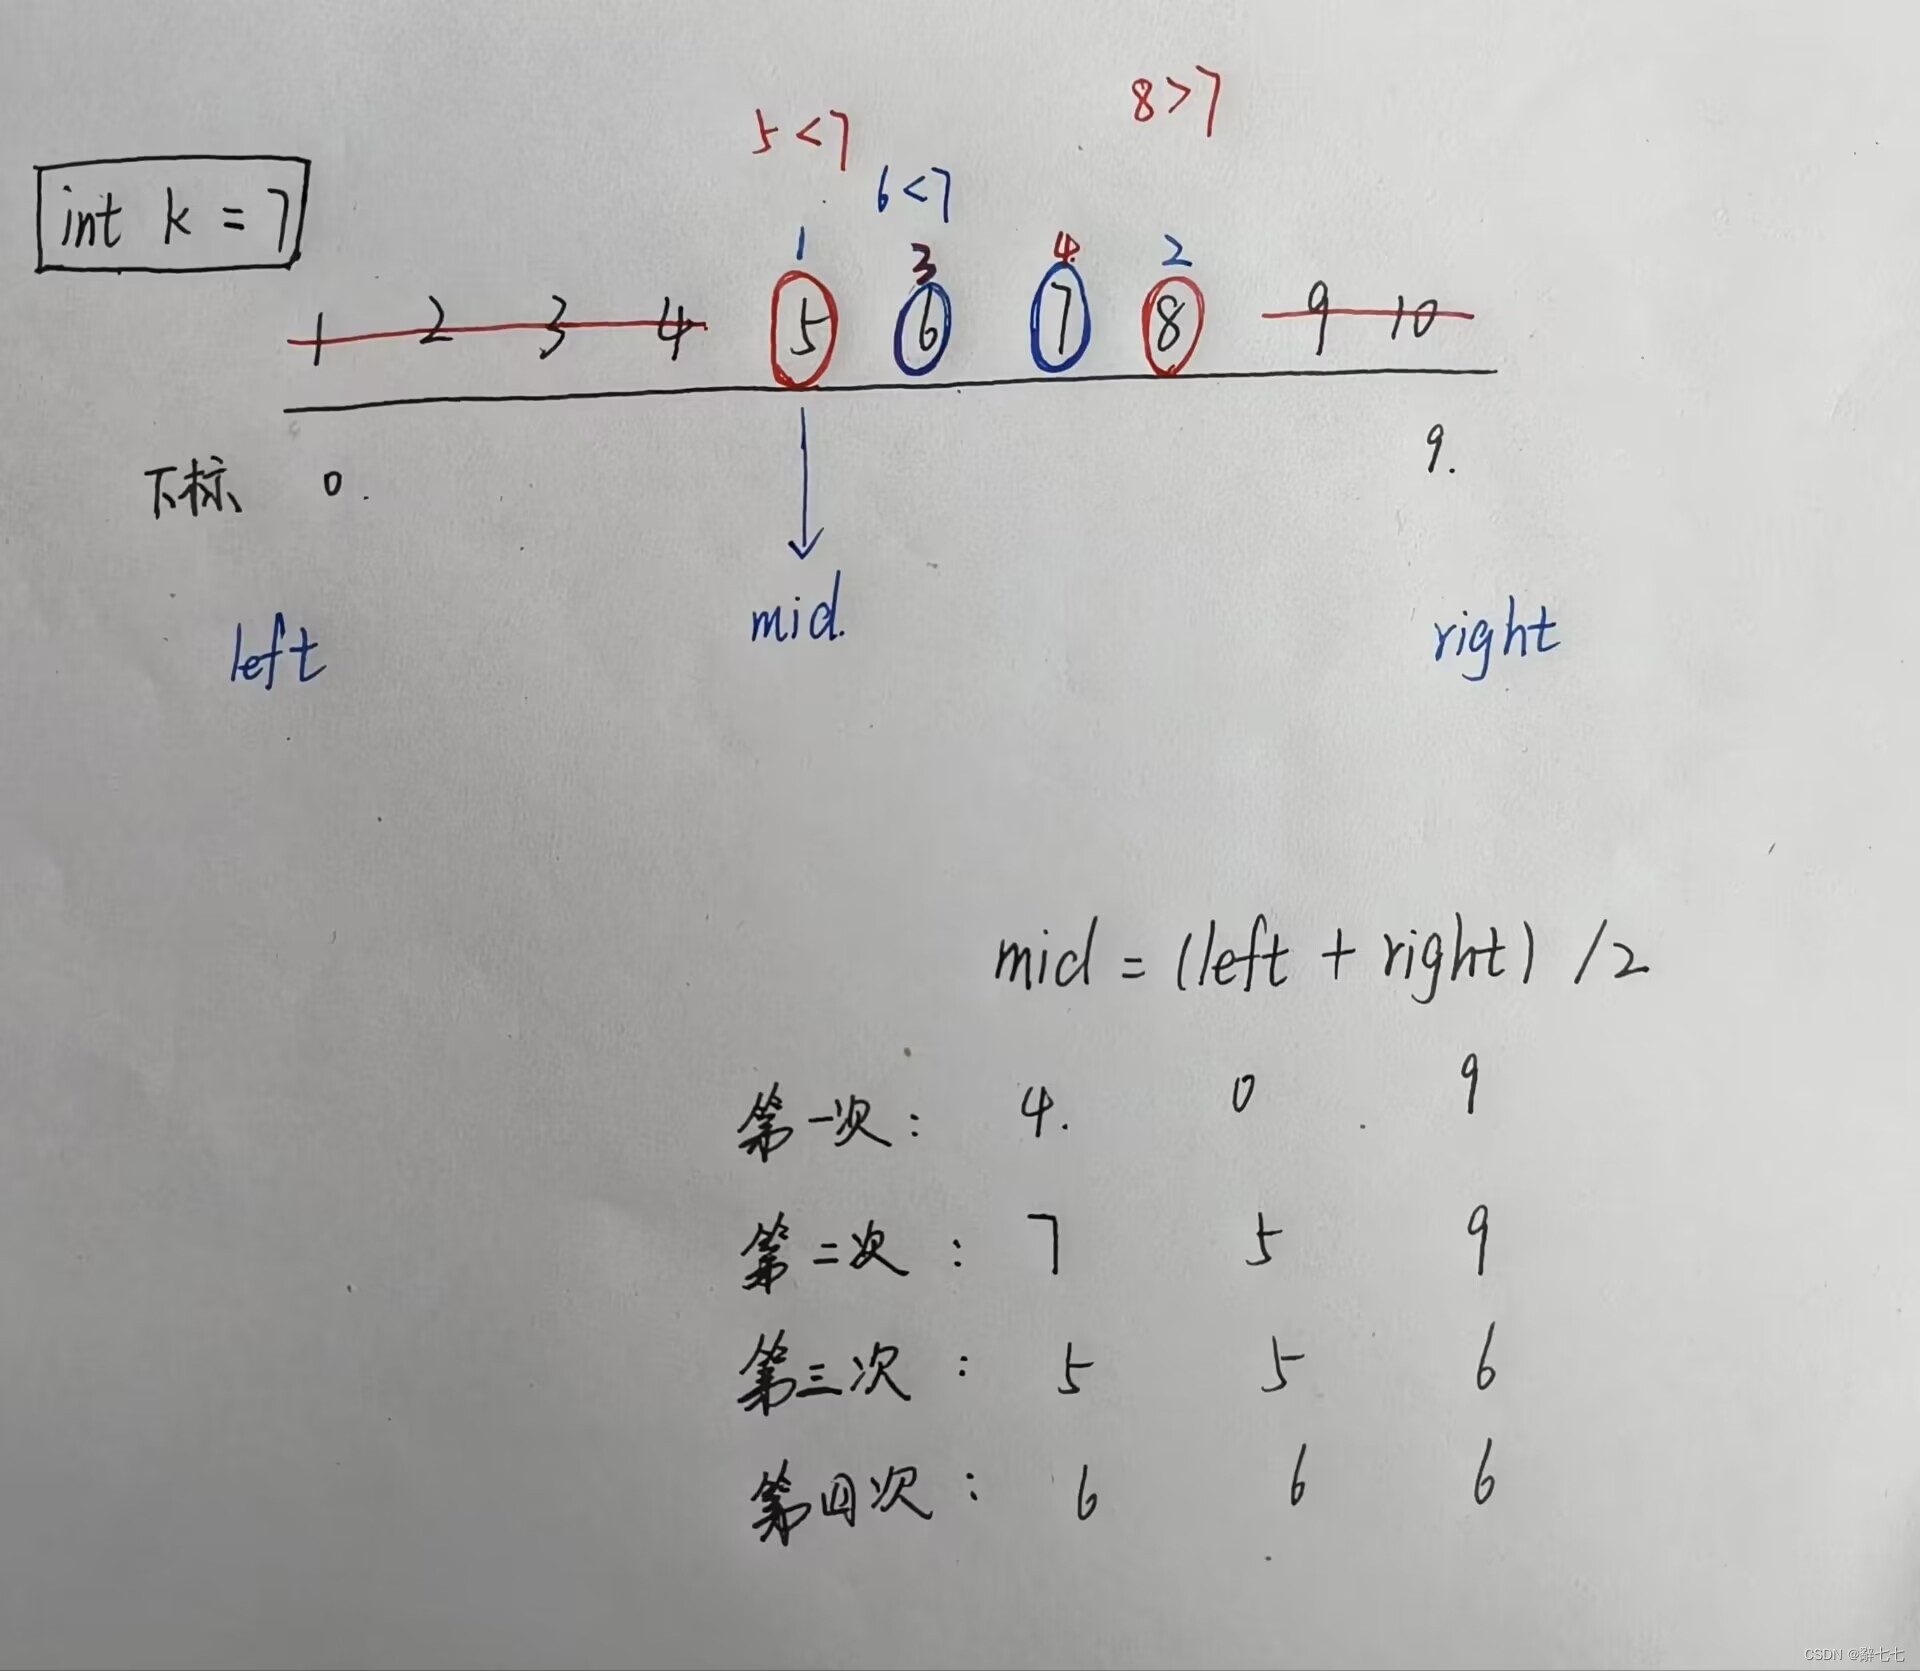 5<7
8>7
6<7
int k = 7
1 3 4. 2
1 2 3 4 5 6 7 8 9 10
下标 0. 9.
left mid. right
mid = (left + right) /2
第一次: 4. 0 9
第二次: 7 5 9
第三次: 5 5 6
第四次: 6 6 6
CSDN @辭七七